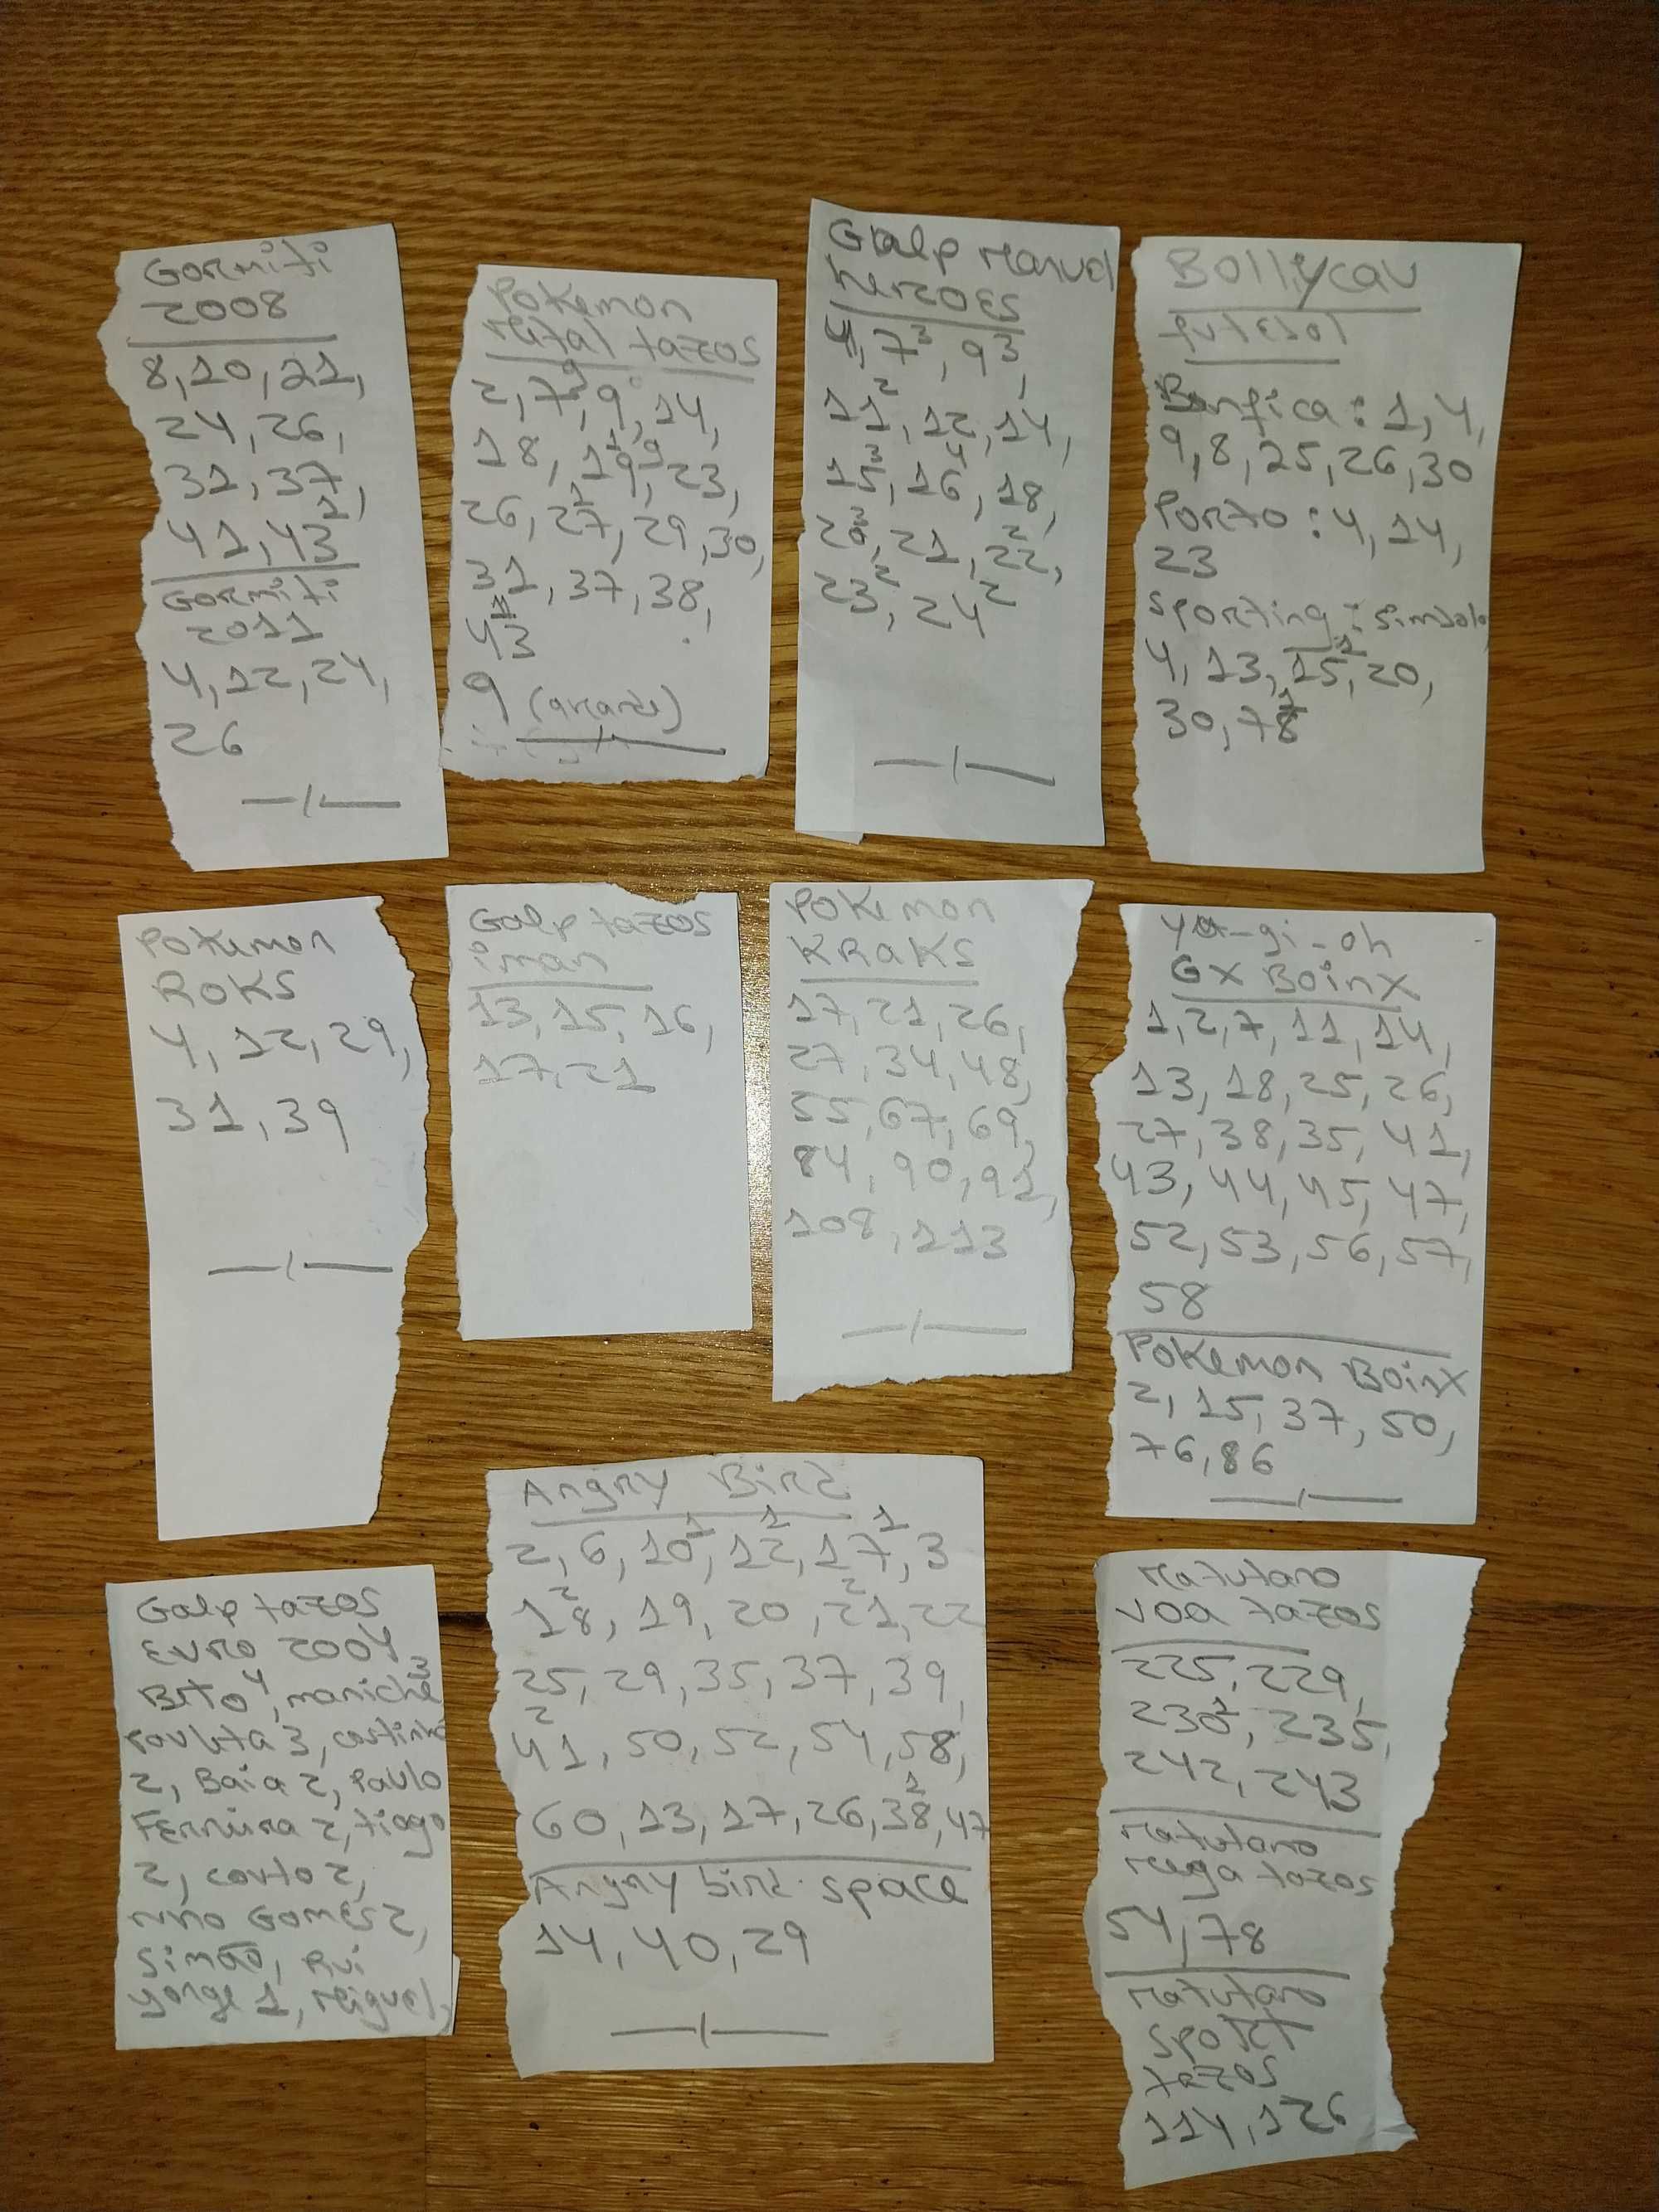 Gormiti
2008
8,10,21,
24,26,
31,37,
41,43¹,
Gormiti
2011
4,12,24,
26
Pokemon
metal tazos
2,7,9,14,
18,19,23,
26,27¹,29,30,
31,37,38,
43
9 (grande)
Galp Marvel
heroes
4,7³,93,
11²,12,14,
15³,16⁴,18,
20³,21,22²,
23²,24²
Bollycau
futebol
Benfica: 1,4,
9,8,25,26,30
Porto: 4,14,
23
Sporting: simbolo
4,13,15²,20,
30,78¹
Pokemon
ROKS
4,12,29,
31,39
Galp tazos
iman
13,15,16,
17,21
Pokemon
KRAKS
17,21,26,
27,34,48,
55,67,69,
84,90,92,
108,113
yu-gi-oh
GX Boinx
1,2,7,11,14,
13,18,25,26,
27,38,35,41,
43,44,45,47,
52,53,56,57,
58
Pokemon Boinx
2,15,37,50,
76,86
Galp tazos
euro 2004
Beto⁴, maniche³
Pauleta 3, costinha
2, Baia 2, Paulo
Ferreira 2, tiago
2, couto 2,
nuno Gomes 2,
simão, Rui
yorge 1, Miguel,
Angry Bird
2,6,10¹,12¹,17¹,3
18²,19,20,21²,22
25,29,35,37,39,
41²,50,52,54,58,
60,13,17,26,38¹,47
Angry bird space
14,40,29
matutano
voa tazos
225,229,
230¹,235,
242,243
matutano
mega tazos
54,78
matutano
sport
tazos
114,126